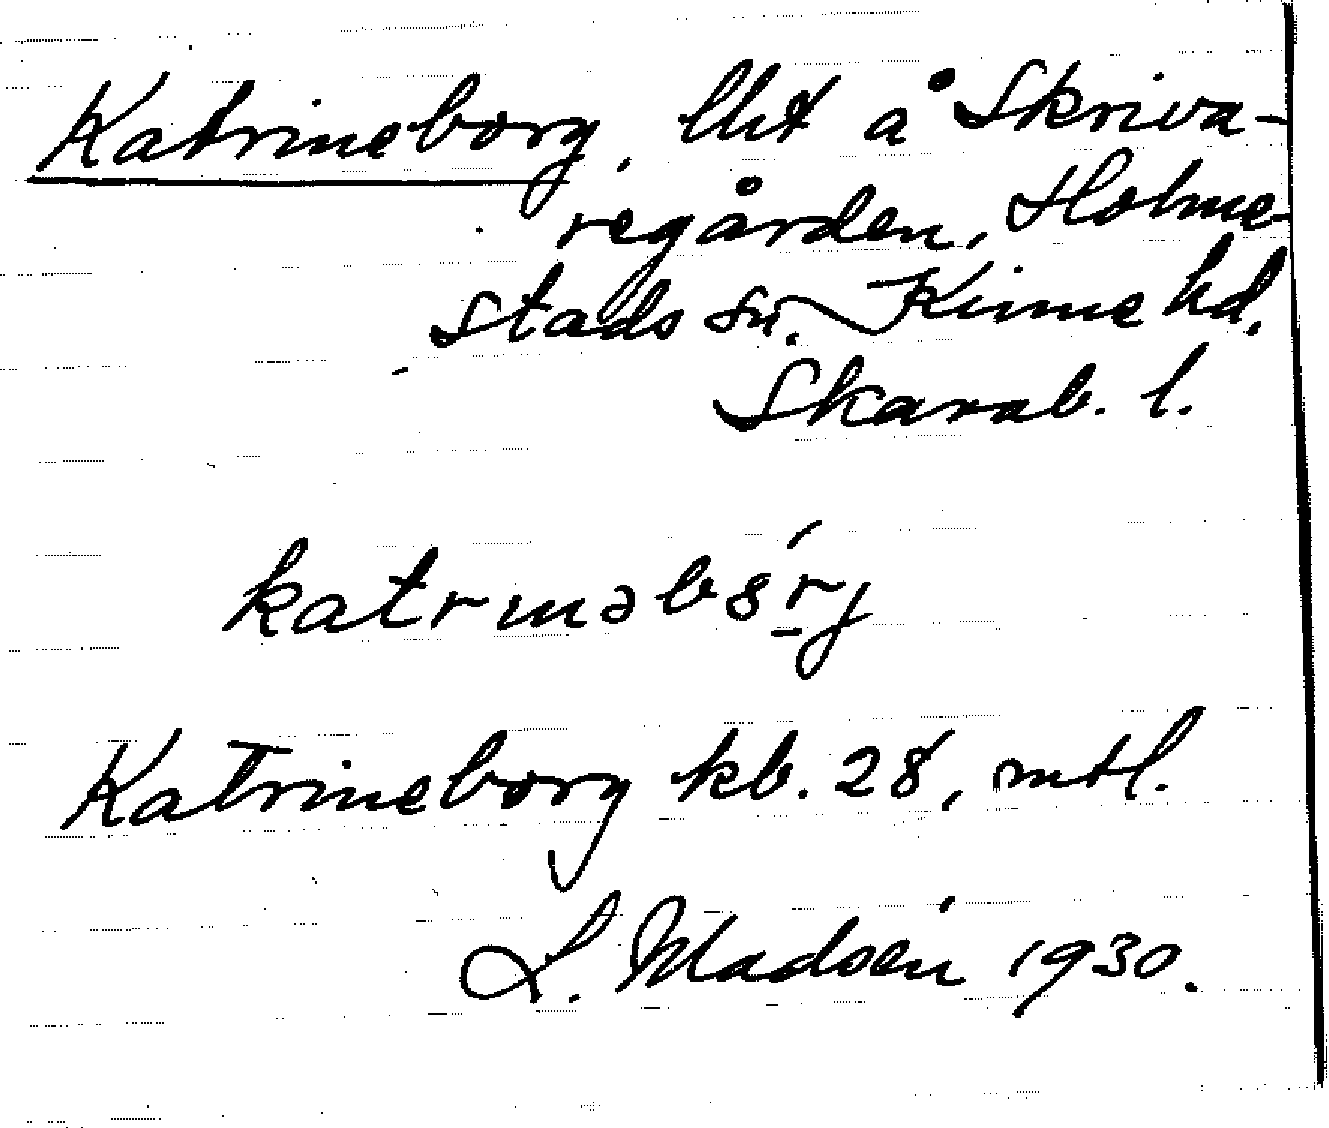 Katrineborg, lht å Skriva-
regården, Holme-
stads sn. Kinne hd.
Skarab. l.
katrinəbórj
Katrineborg kb. 28, mtl.
L. Madsén 1930.